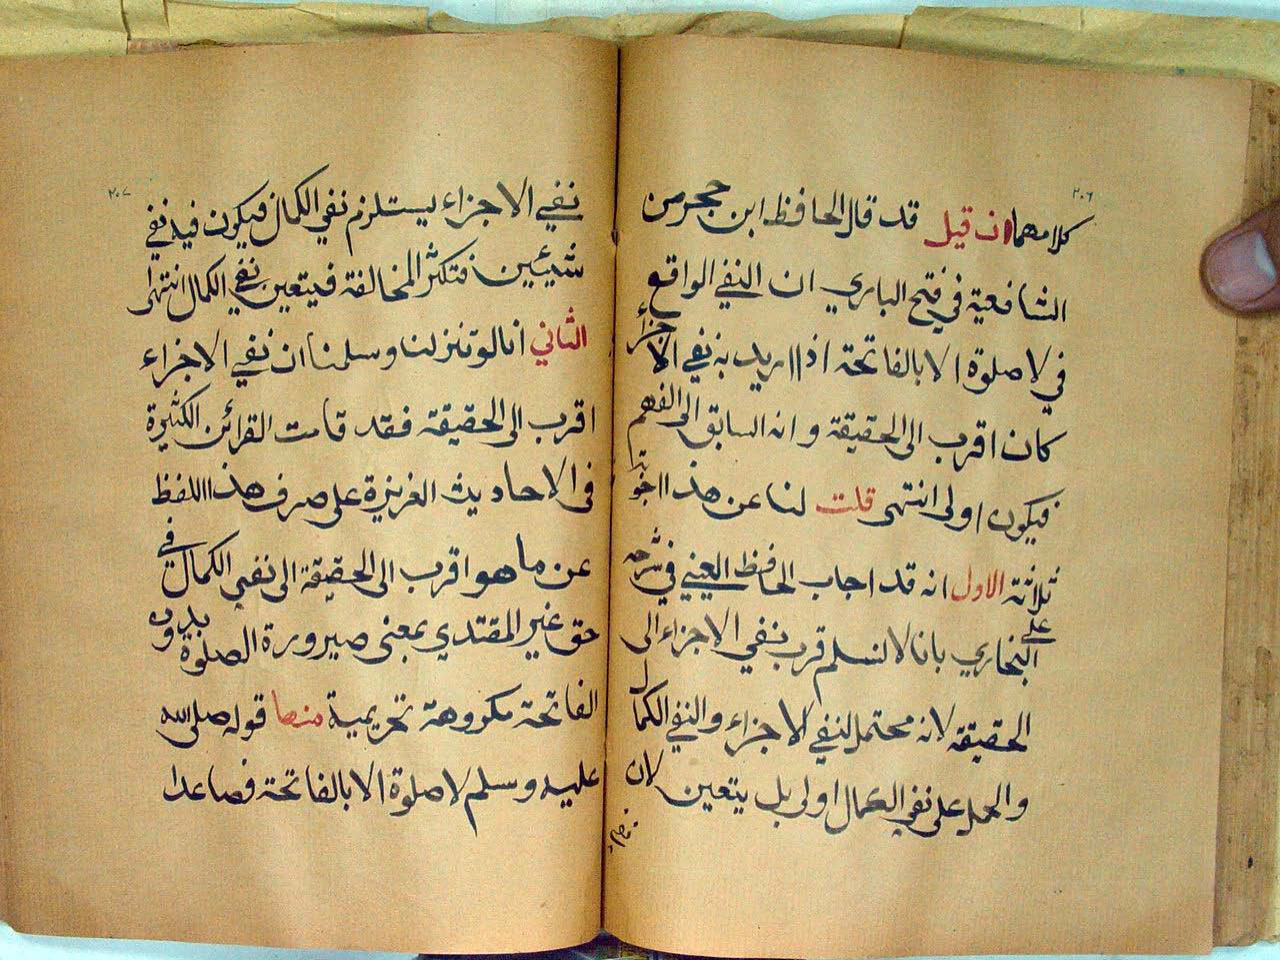 ٢٠٦
كلامهما ان قيل قد قال الحافظ ابن حجر من
الشافعية في فتح الباري ان النفي الواقع
في لا صلوة الا بالفاتحة اذا اريد به نفي الاجزاء
كان اقرب الى الحقيقة وانه السابق الى الفهم
فيكون اولى انتهى قلت لنا عن هذا اجوبة
ثلاثة الاول انه قد اجاب الحافظ العيني في شرحه
على البخاري بانا لا نسلم قرب نفي الاجزاء الى
الحقيقة لانه محتمل لنفي الاجزاء والنفي الكمال
والحمل على نفي الكمال اولى بل يتعين لان
نفي
٢٠٧
نفي الاجزاء يستلزم نفي الكمال فيكون فيه نفي
شيئين فتكثر المخالفة فيتعين نفي الكمال انتهى
الثاني انا لو تنزلنا وسلمنا ان نفي الاجزاء
اقرب الى الحقيقة فقد قامت القرائن الكثيرة
في الاحاديث الغزيزة على صرف هذا اللفظ
عن ما هو اقرب الى الحقيقة الى نفي الكمال في
حق غير المقتدي بمعنى صيرورة الصلوة بدون
الفاتحة مكروهة تحريمية منها قوله صلى الله
عليه وسلم لا صلوة الا بالفاتحة فصاعدا